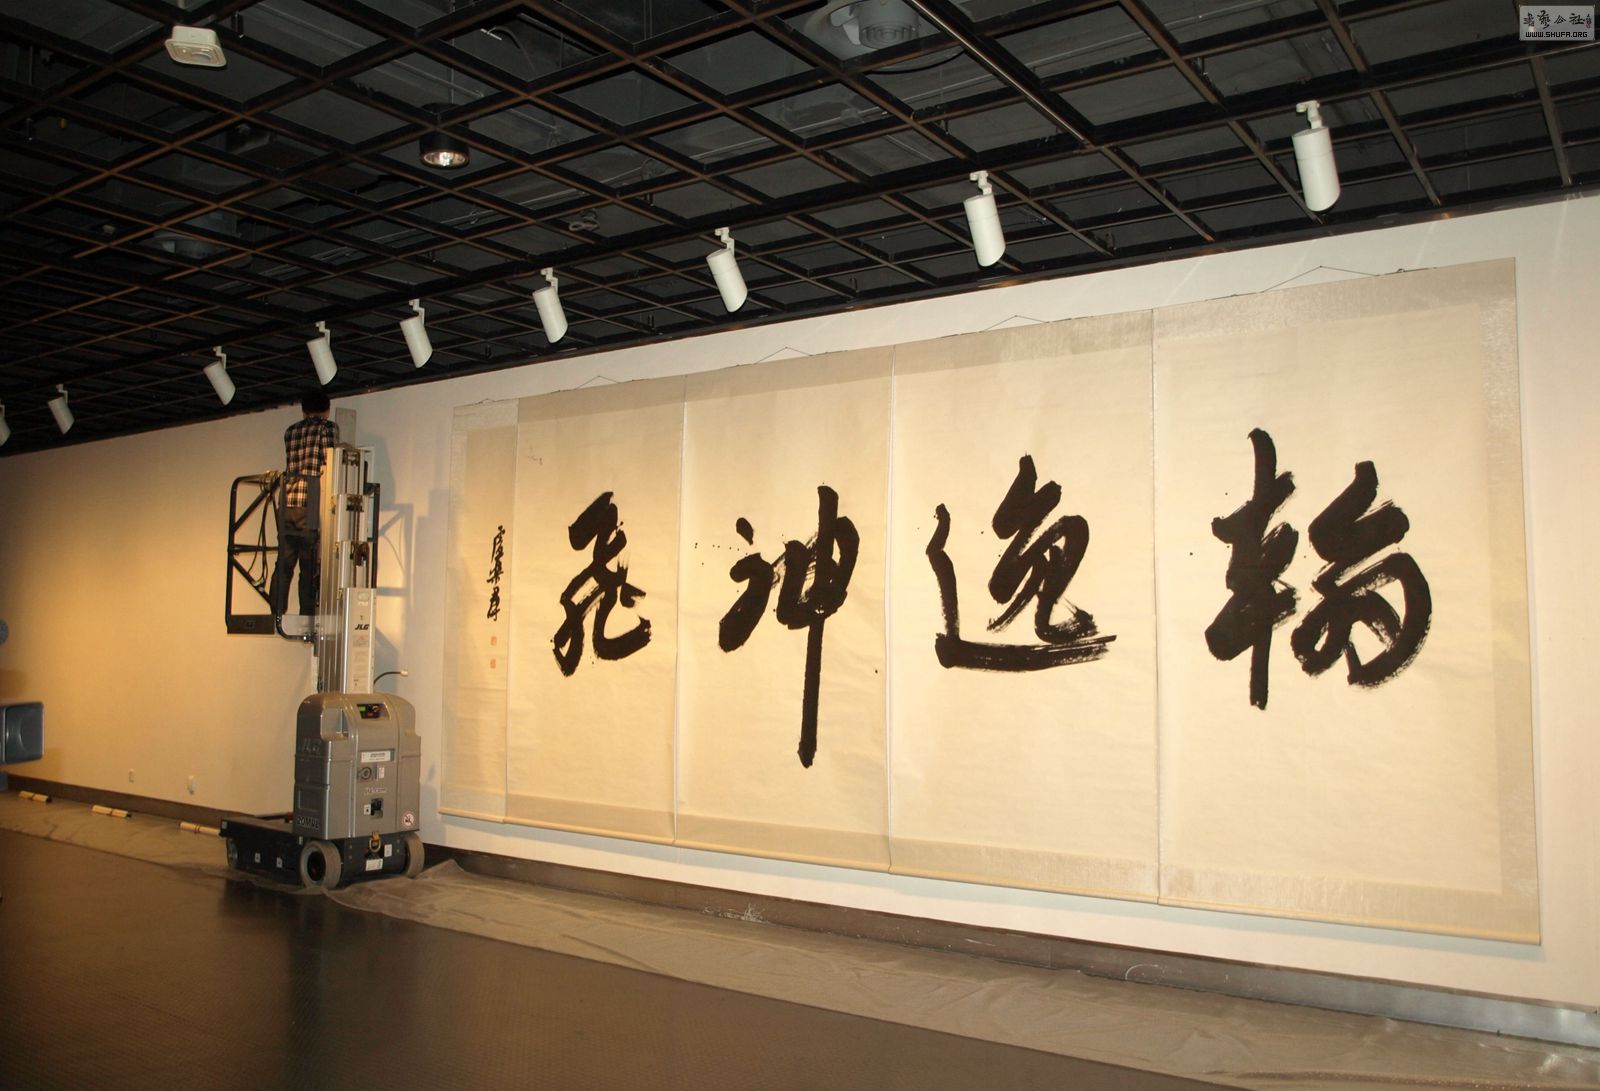 翰逸神飛
書藝公社
WWW.SHUFA.ORG
JLG
20MVL